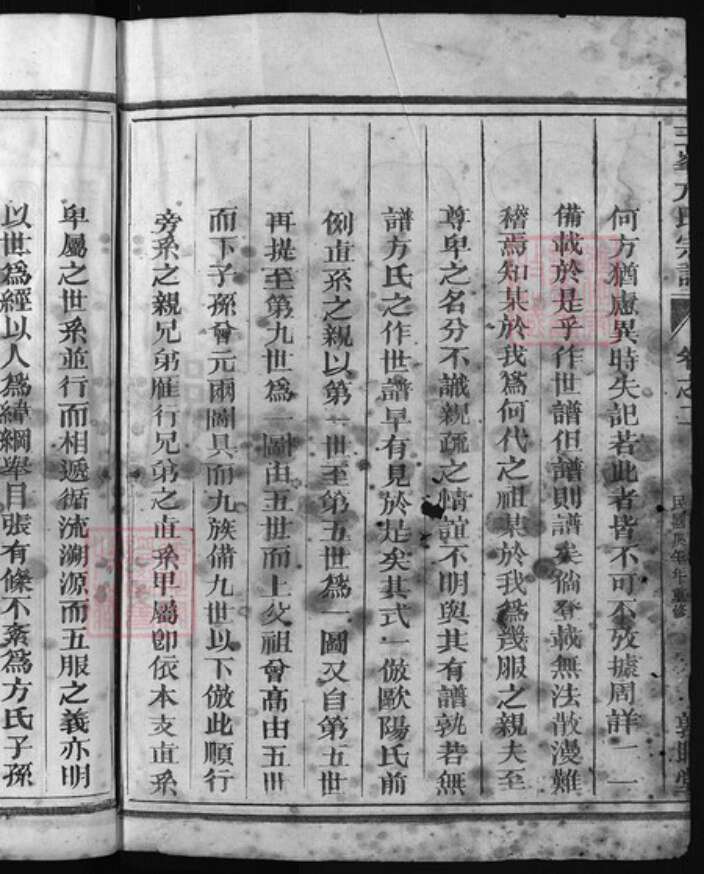 方氏宗譜 卷之二 民國庚午年重修
何方猶慮異時失記若此者皆不可不攷據周詳一一
備載於是乎作世譜但譜則譜矣倘登載無法散漫難
稽焉知某於我為何代之祖某於我為幾服之親夫至
尊卑之名分不識親疏之情誼不明與其有譜孰若無
譜方氏之作世譜早有見於是矣其式一倣歐陽氏前
例直系之親以第一世至第五世為一圖又自第五世
再提至第九世為一圖由五世而上父祖曾高由五世
而下子孫曾元兩圖具而九族備九世以下倣此順行
旁系之親兄弟雁行兄弟之直系甲屬卽依本支直系
卑屬之世系並行而相遞循流溯源而五服之義亦明
以世為經以人為緯綱舉目張有條不紊為方氏子孫